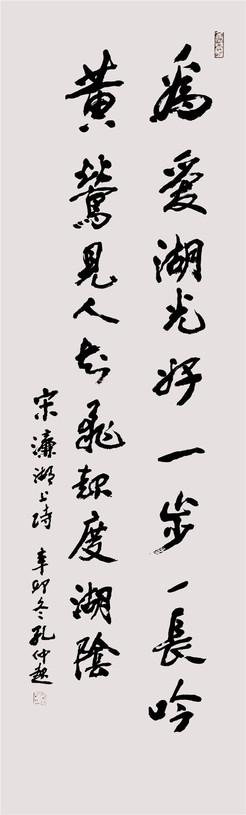 為愛湖光好一步一長吟
黄鶯見人至飛起度湖陰
宋濂湖上詩 辛卯冬孔仲起